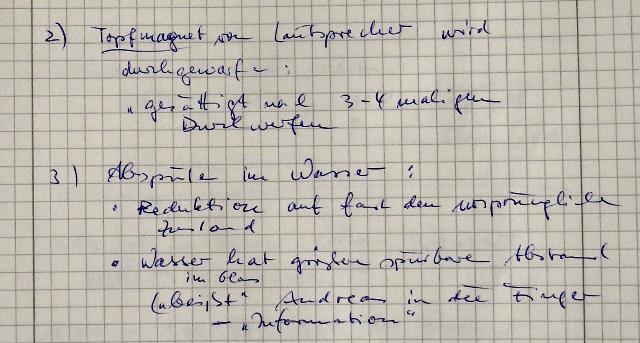 2) Topfmagnet von Lautsprecher wird
durchgeworfen :
"gesättigt nach 3-4 maligem
Durchwerfen
3) Abspüle im Wasser :
• Reduktion auf fast den ursprünglichen
Zustand
• Wasser hat größen spürbare Abstand
im Glas
("beißt" Andreas in die Finger
– "Information"